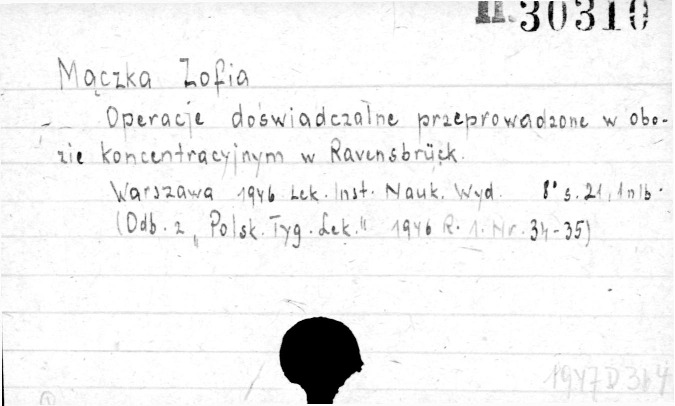 II. 30310
Mączka Zofia
Operacje doświadczalne przeprowadzone w obo-
zie koncentracyjnym w Ravensbrück.
Warszawa 1946 Lek. Inst. Nauk. Wyd. 8° s. 21, 1 nlb.
(Odb. z „Polsk. Tyg. Lek." 1946 R. 1. Nr. 34-35)
1947 D 364